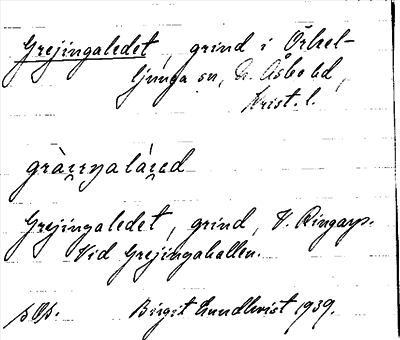 Grejingaledet, grind i Örkel-
ljunga sn, N. Åsbo hd,
Krist. l.
Grejingaledet, grind, V. Ringarp.
Vid Grejingahallen.
Birgit Lundkvist 1939.